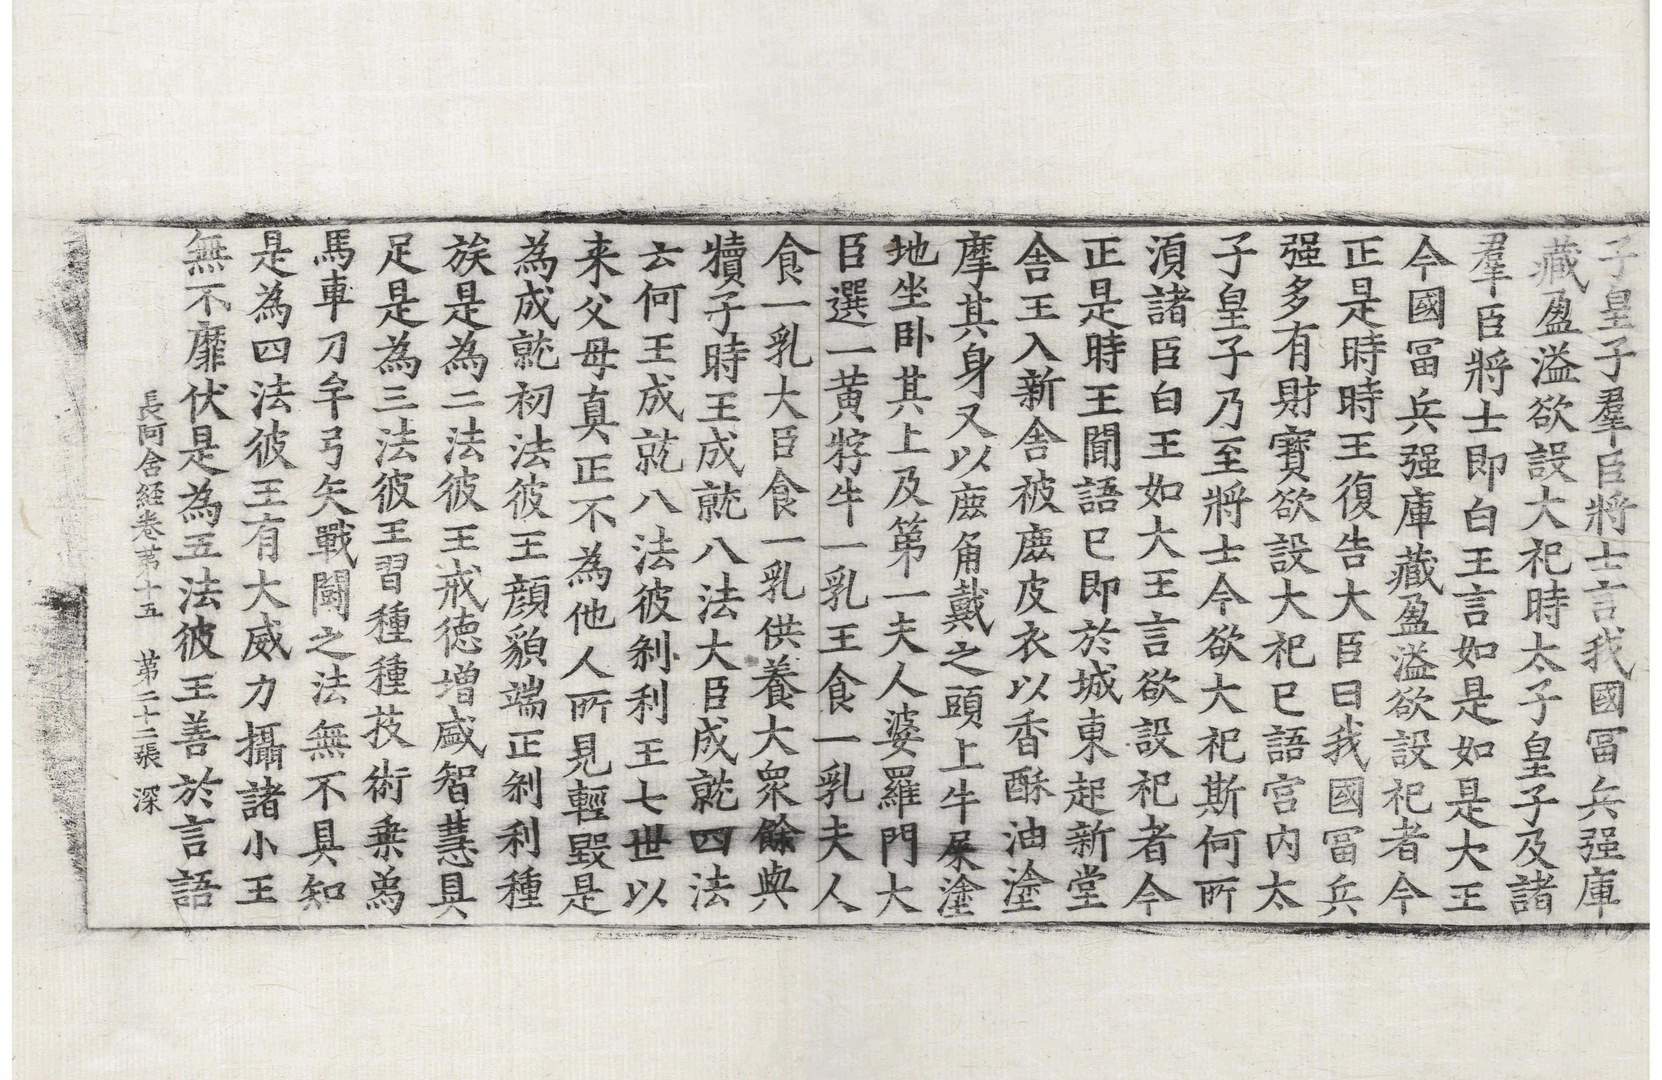 子皇子羣臣將士言我國冨兵强庫
藏盈溢欲設大祀時太子皇子及諸
羣臣將士即白王言如是如是大王
今國冨兵强庫藏盈溢欲設祀者今
正是時時王復告大臣曰我國冨兵
强多有財寶欲設大祀已語宮内太
子皇子乃至將士今欲大祀斯何所
湏諸臣白王如大王言欲設祀者今
正是時王聞語已即於城東起新堂
舎王入新舎被鹿皮衣以香酥油塗
摩其身又以鹿角戴之頭上牛屎塗
地坐卧其上及第一夫人婆羅門大
臣選一黄牸牛一乳王食一乳夫人
食一乳大臣食一乳供養大衆餘與
犢子時王成就八法大臣成就四法
云何王成就八法彼刹利王七世以
来父母真正不為他人所見輕毀是
為成就初法彼王顔貌端正刹利種
族是為二法彼王戒徳増盛智慧具
足是為三法彼王習種種技術乗象
馬車刀牟弓矢戰鬪之法無不具知
是為四法彼王有大威力攝諸小王
無不靡伏是為五法彼王善於言語
長阿含経卷苐十五　苐二十二張　深